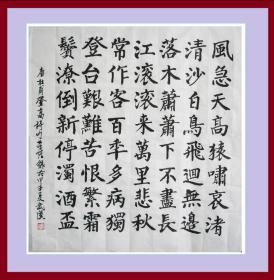 風急天高猿嘯哀渚
清沙白鳥飛迴無邊
落木蕭蕭下不盡長
江滾滾来萬里悲秋
常作客百年多病獨
登台艱難苦恨繁霜
鬢潦倒新停濁酒盃
唐杜甫登高詩